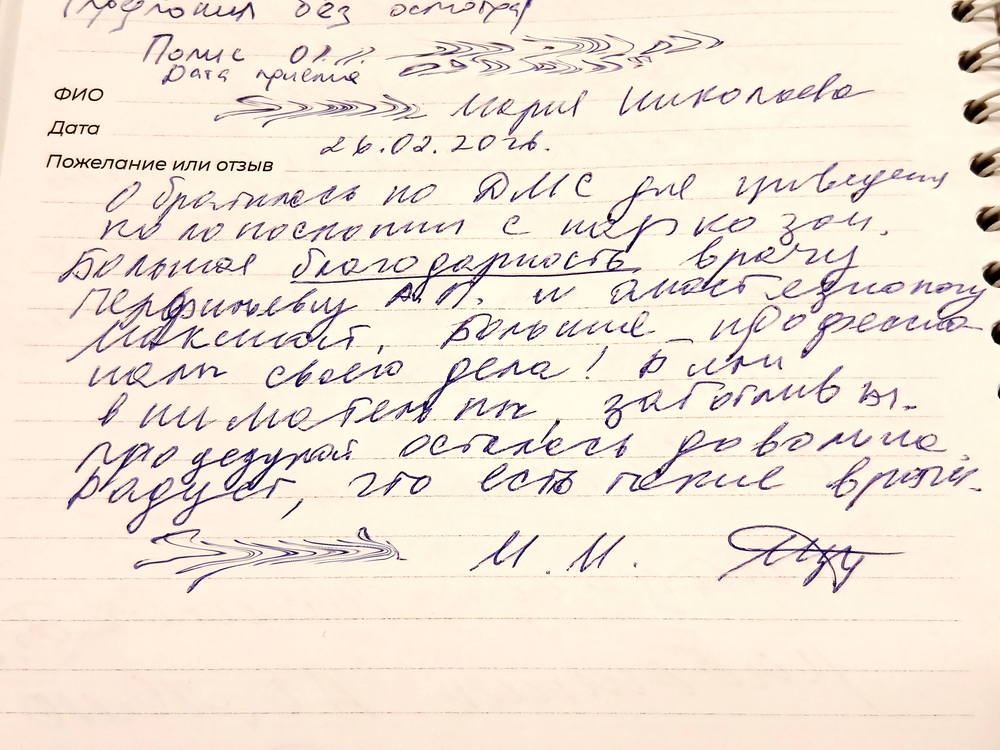 без осмотра
Полис
Дата приема
ФИО Мария Николаевна
Дата 26.02.2026.
Пожелание или отзыв
Обратилась по ДМС для проведения
колоноскопии с наркозом.
Большая благодарность врачу
Перфильеву А.П. и анестезиологу
Большие профессио-
налы своего дела! Были
внимательны, заботливы.
процедурой осталась довольна.
Радует, что есть такие врачи.
М.Н.